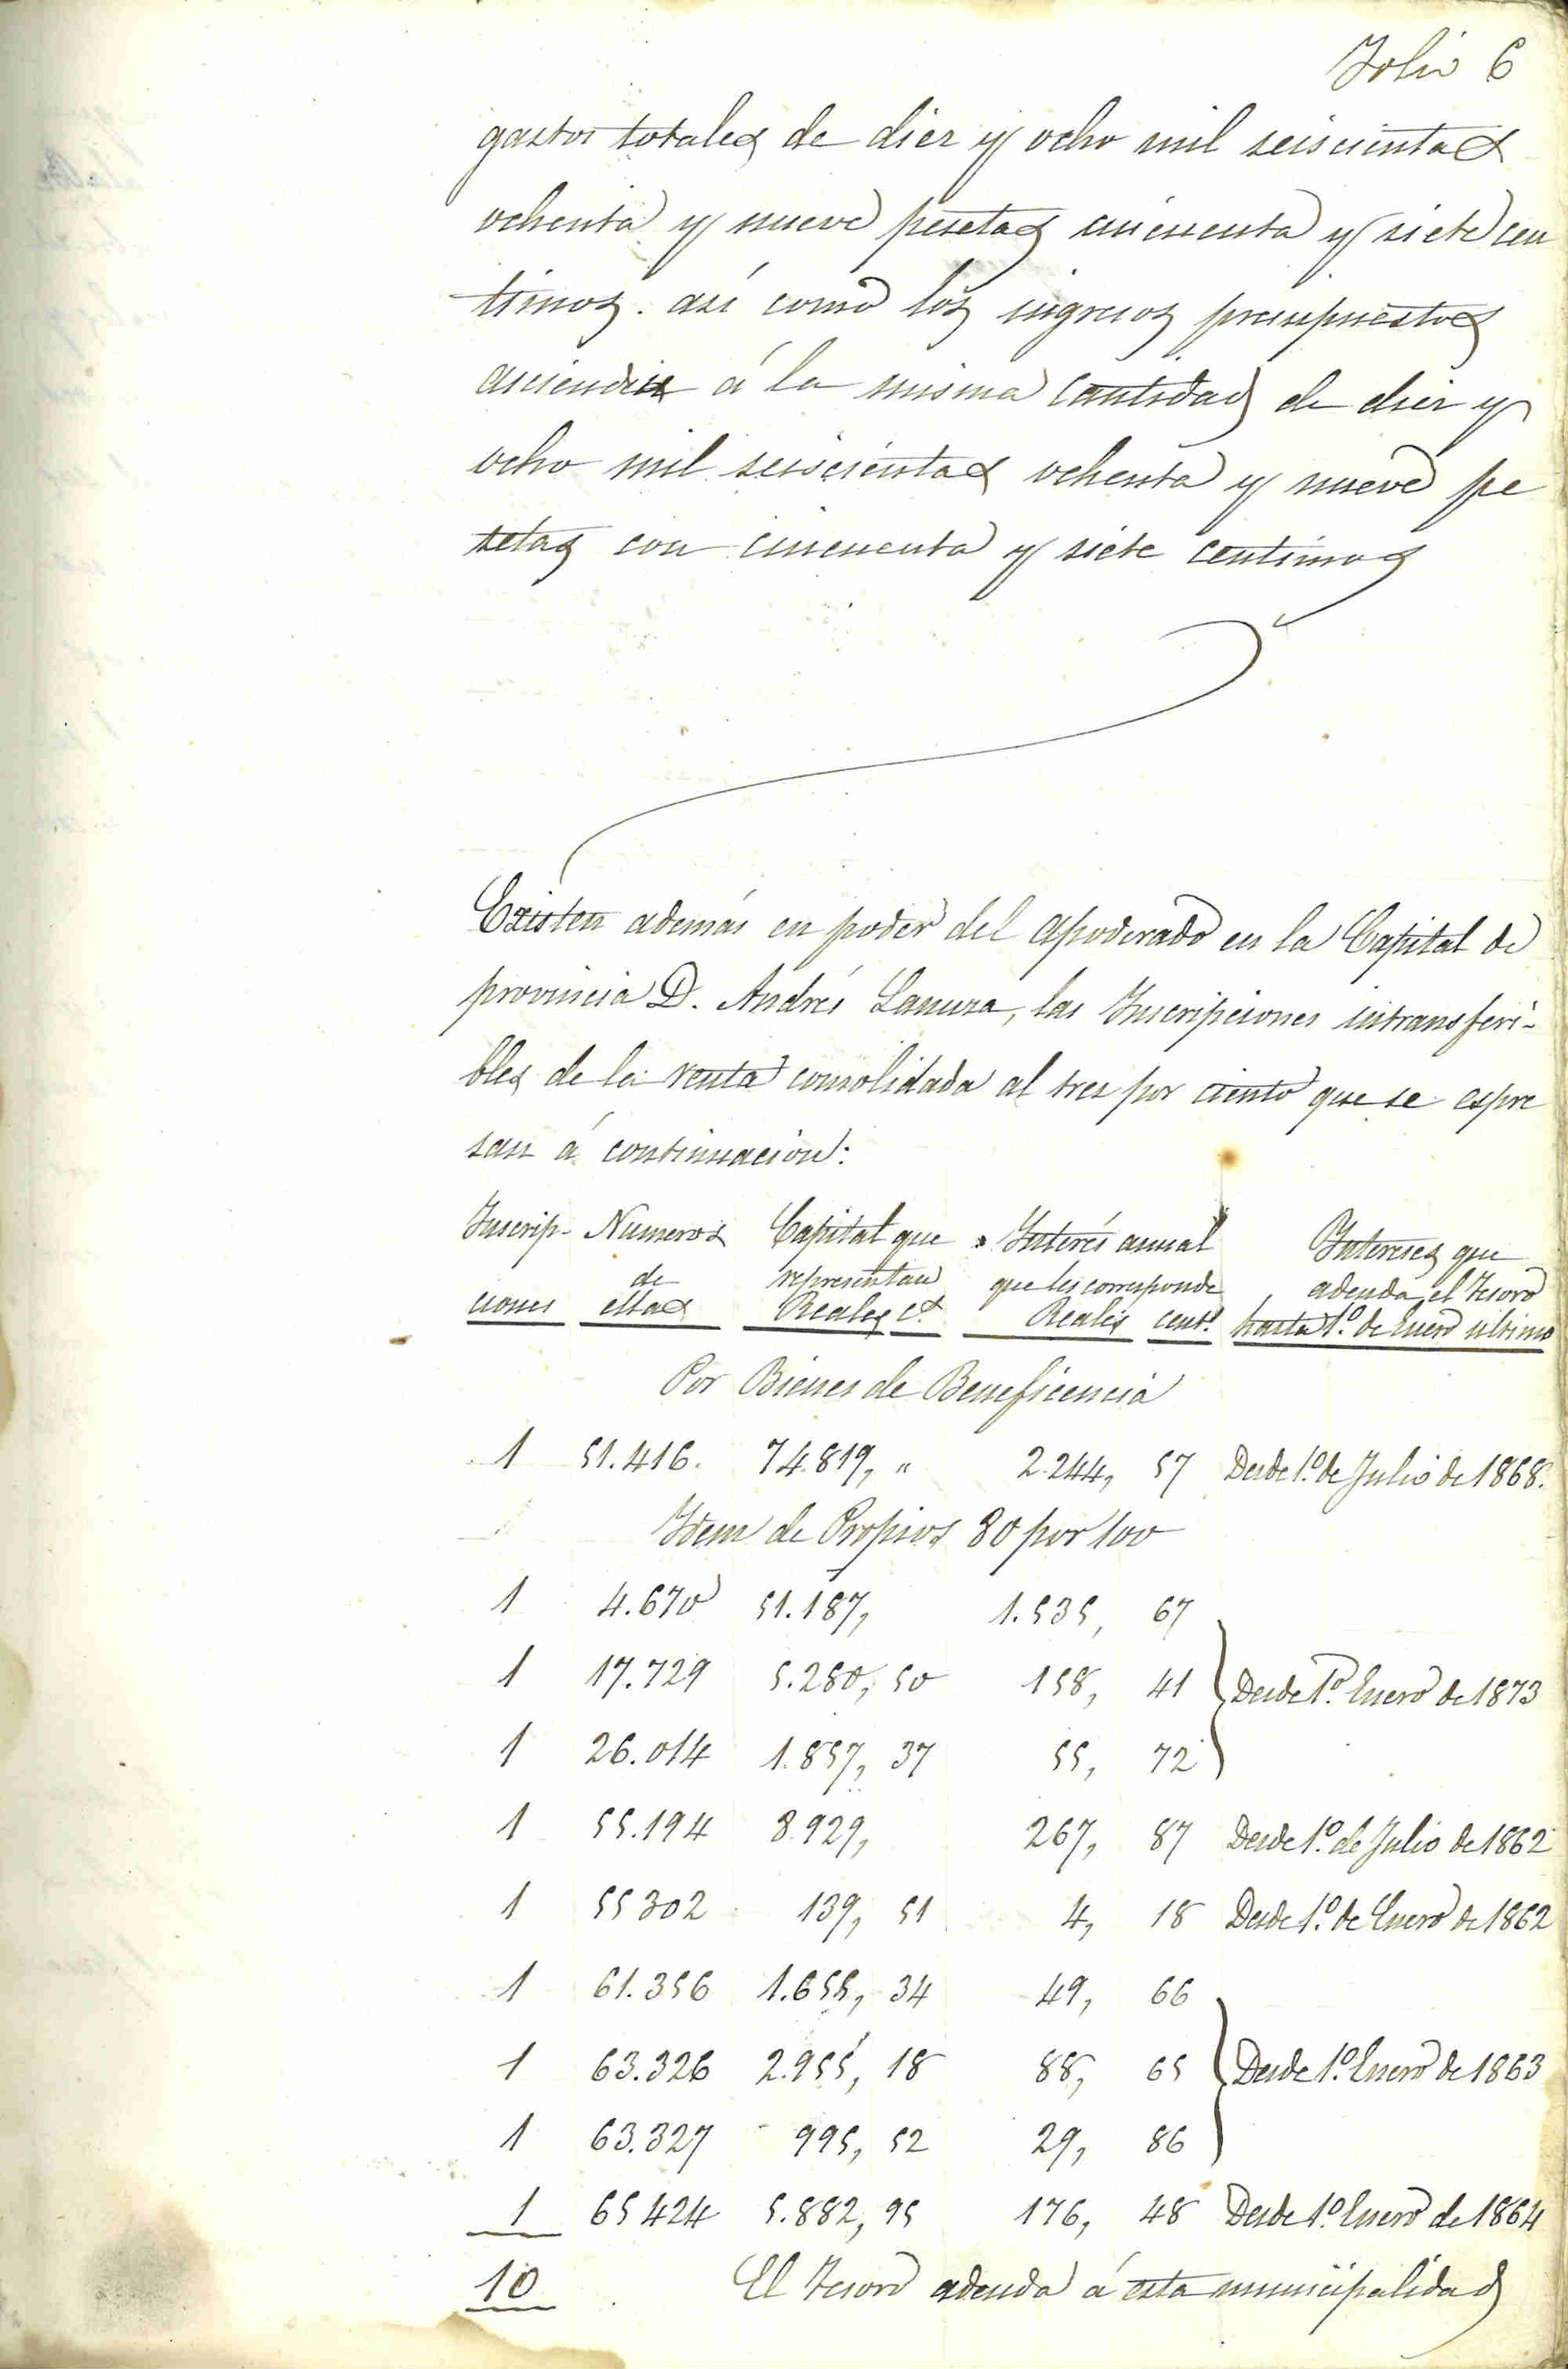 Folio 6
gastos totales de diez y ocho mil seiscientas
ochenta y nueve pesetas cincuenta y siete cen
timos. así como los ingresos presupuestos
ascienden á la misma cantidad de diez y
ocho mil seiscientas ochenta y nueve pe
setas con cincuenta y siete centimos
Existen además en poder del apoderado en la Capital de
provincia D. Andrés Lanuza, las Inscripciones intransferi-
bles de la renta consolidada al tres por ciento que se espre
san á continuación:
Inscrip- Numeros Capital que Interés anual Intereses que
de representan que les corresponde adeuda el Tesoro
ciones ellas Reales c.s Reales cent.s hasta 1.º de Enero último
Por Bienes de Beneficencia
1 51.416. 74.819, " 2.244, 57 Desde 1.º de Julio de 1868.
Idem de Propios 80 por 100
1 4.670 51.187, 1.535, 67
1 17.729 5.280, 50 158, 41 Desde 1.º Enero de 1873
1 26.014 1.857, 37 55, 72
1 55.194 8.929, 267, 87 Desde 1.º de Julio de 1862
1 55302 139, 51 4, 18 Desde 1.º de Enero de 1862
1 61.356 1.655, 34 49, 66
1 63.326 2.955, 18 88, 65 Desde 1.º Enero de 1863
1 63.327 995, 52 29, 86
1 65424 5.882, 95 176, 48 Desde 1.º Enero de 1864
10 El Tesoro adeuda á esta municipalidad